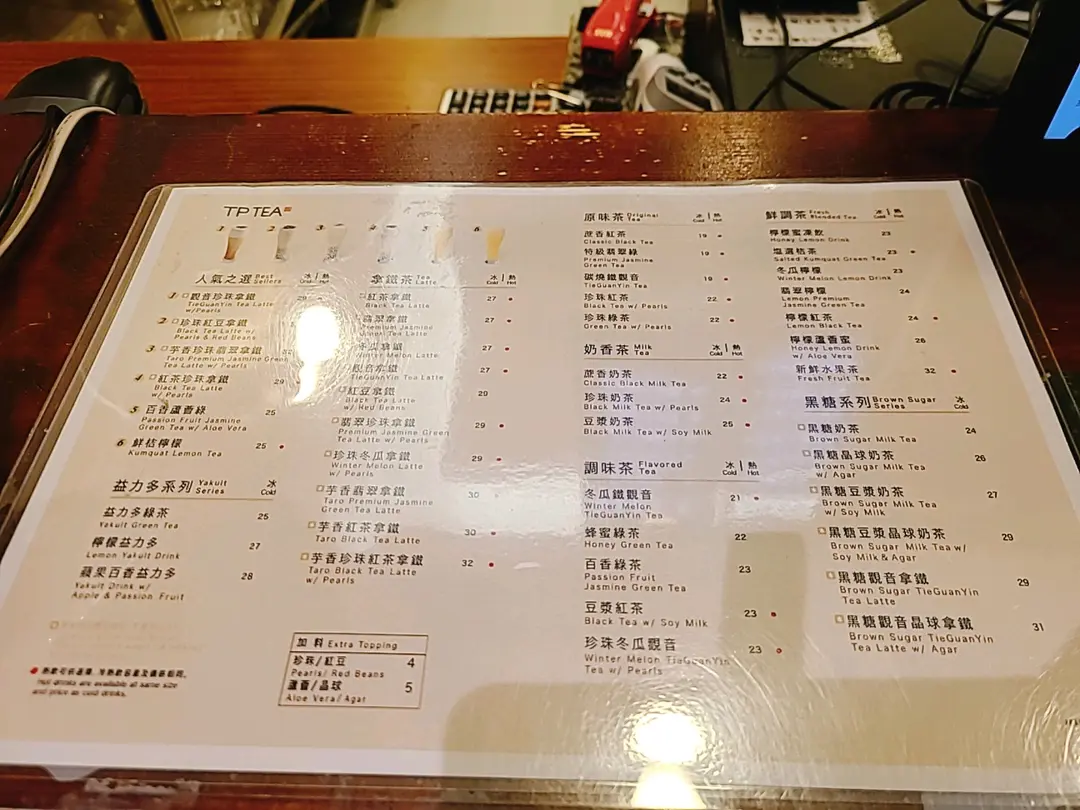 TP TEA
1 2 3 4 5 6
人氣之選 Best Sellers 冰 Cold | 熱 Hot
1 觀音珍珠拿鐵
TieGuanYin Tea Latte
w/Pearls
2 珍珠紅豆拿鐵
Black Tea Latte w/
Pearls & Red Beans
3 芋香珍珠翡翠拿鐵
Taro Premium Jasmine Green
Tea Latte w/ Pearls
4 紅茶珍珠拿鐵 29
Black Tea Latte
w/ Pearls
5 百香蘆薈綠 25
Passion Fruit Jasmine
Green Tea w/ Aloe Vera
6 鮮桔檸檬 25
Kumquat Lemon Tea
益力多系列 Yakult Series 冰 Cold
益力多綠茶 25
Yakult Green Tea
檸檬益力多 27
Lemon Yakult Drink
蘋果百香益力多 28
Yakult Drink w/
Apple & Passion Fruit
熱飲可供選擇，冷熱飲容量及價錢相同。
Hot drinks are available at same size
and price as cold drinks.
拿鐵茶 Tea Latte 冰 Cold | 熱 Hot
紅茶拿鐵 27
Black Tea Latte
翡翠拿鐵 27
Premium Jasmine
Green Tea Latte
冬瓜拿鐵 27
Winter Melon Latte
觀音拿鐵 27
TieGuanYin Tea Latte
紅豆拿鐵 29
Black Tea Latte
w/ Red Beans
翡翠珍珠拿鐵 29
Premium Jasmine Green
Tea Latte w/ Pearls
珍珠冬瓜拿鐵 29
Winter Melon Latte
w/ Pearls
芋香翡翠拿鐵 30
Taro Premium Jasmine
Green Tea Latte
芋香紅茶拿鐵 30
Taro Black Tea Latte
芋香珍珠紅茶拿鐵 32
Taro Black Tea Latte
w/ Pearls
加料 Extra Topping
珍珠/紅豆 4
Pearls/ Red Beans
蘆薈/晶球 5
Aloe Vera/ Agar
原味茶 Original Tea 冰 Cold | 熱 Hot
蔗香紅茶 19
Classic Black Tea
特級翡翠綠 19
Premium Jasmine
Green Tea
碳燒鐵觀音 19
TieGuanYin Tea
珍珠紅茶 22
Black Tea w/ Pearls
珍珠綠茶 22
Green Tea w/ Pearls
奶香茶 Milk Tea 冰 Cold | 熱 Hot
蔗香奶茶 22
Classic Black Milk Tea
珍珠奶茶 24
Black Milk Tea w/ Pearls
豆漿奶茶 25
Black Milk Tea w/ Soy Milk
調味茶 Flavored Tea 冰 Cold | 熱 Hot
冬瓜鐵觀音 21
Winter Melon
TieGuanYin Tea
蜂蜜綠茶 22
Honey Green Tea
百香綠茶 23
Passion Fruit
Jasmine Green Tea
豆漿紅茶 23
Black Tea w/ Soy Milk
珍珠冬瓜觀音 23
Winter Melon TieGuanYin
Tea w/ Pearls
鮮調茶 Fresh Blended Tea 冰 Cold | 熱 Hot
檸檬蜜凍飲 23
Honey Lemon Drink
塩選桔茶 23
Salted Kumquat Green Tea
冬瓜檸檬 23
Winter Melon Lemon Drink
翡翠檸檬 24
Lemon Premium
Jasmine Green Tea
檸檬紅茶 24
Lemon Black Tea
檸檬蘆香蜜 26
Honey Lemon Drink
w/ Aloe Vera
新鮮水果茶 32
Fresh Fruit Tea
黑糖系列 Brown Sugar Series 冰 Cold
黑糖奶茶 24
Brown Sugar Milk Tea
黑糖晶球奶茶 26
Brown Sugar Milk Tea
w/ Agar
黑糖豆漿奶茶 27
Brown Sugar Milk Tea
w/ Soy Milk
黑糖豆漿晶球奶茶 29
Brown Sugar Milk Tea w/
Soy Milk & Agar
黑糖觀音拿鐵 29
Brown Sugar TieGuanYin
Tea Latte
黑糖觀音晶球拿鐵 31
Brown Sugar TieGuanYin
Tea Latte w/ Agar